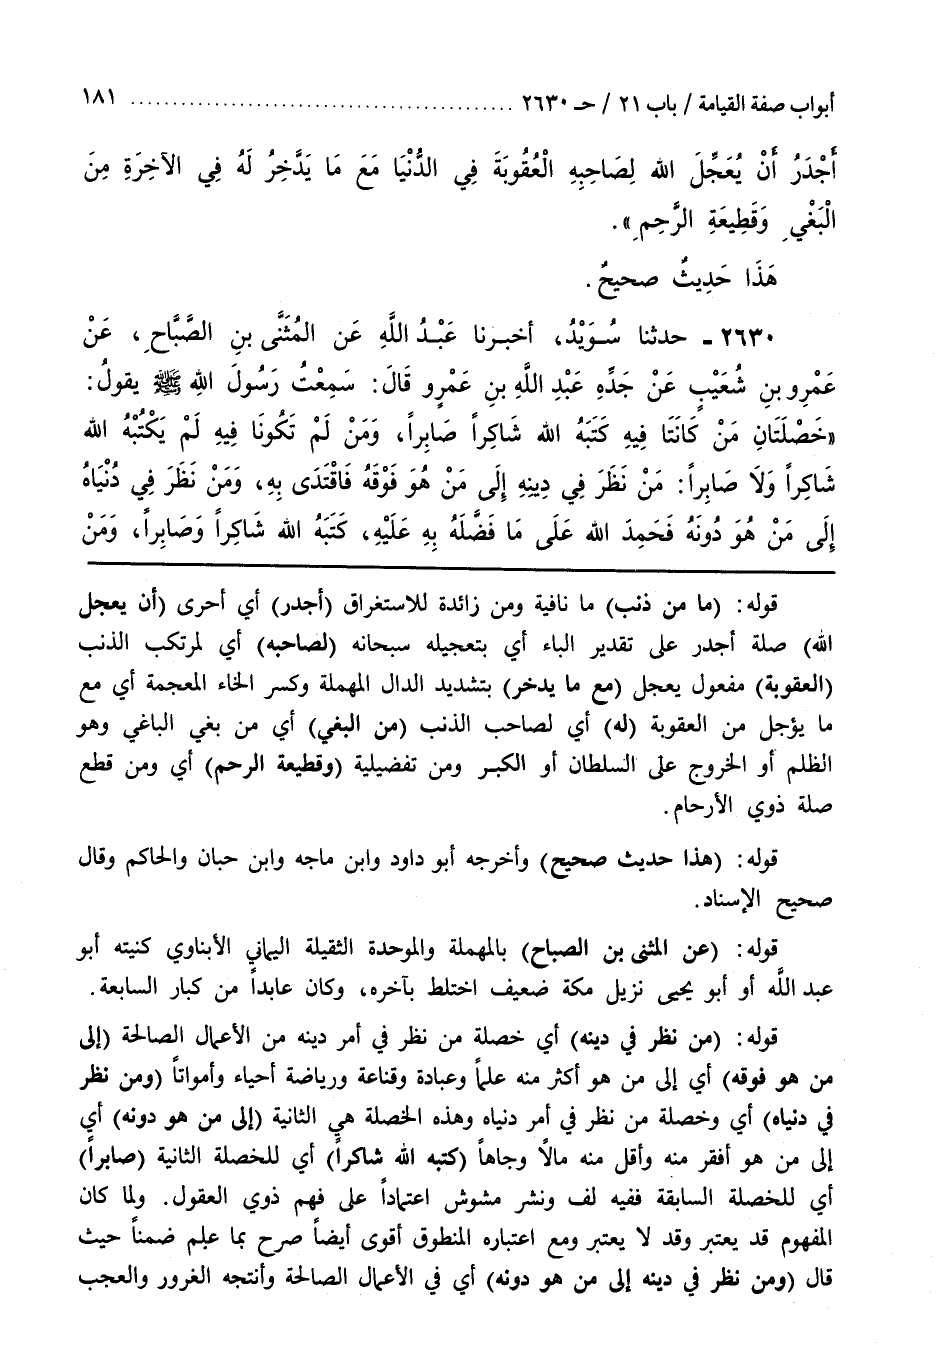 أبواب صفة القيامة / باب ٢١ / حـ ٢٦٣٠ ................................................ ١٨١
أَجْدَرُ أَنْ يُعَجِّلَ الله لِصَاحِبِهِ الْعُقُوبَةَ فِي الدُّنْيَا مَعَ مَا يَدَّخِرُ لَهُ فِي الآخِرَةِ مِنَ
الْبَغْيِ وَقَطِيعَةِ الرَّحِمِ».
هَذَا حَدِيثٌ صحيحٌ.
٢٦٣٠ - حدثنا سُوَيْدٌ، أخبرنا عَبْدُ اللَّهِ عَن المُثَنَّى بنِ الصَّبَّاحِ، عَنْ
عَمْرِو بنِ شُعَيْبٍ عَنْ جَدِّهِ عَبْدِ اللَّهِ بنِ عَمْرٍو قَالَ: سَمِعْتُ رَسُولَ اللهِ ﷺ يقولُ:
«خَصْلَتَانِ مَنْ كَانَتَا فِيهِ كَتَبَهُ الله شَاكِراً صَابِراً، وَمَنْ لَمْ تَكُونَا فِيهِ لَمْ يَكْتُبْهُ الله
شَاكِراً وَلَا صَابِراً: مَنْ نَظَرَ فِي دِينِهِ إِلَى مَنْ هُوَ فَوْقَهُ فَاقْتَدَى بِهِ، وَمَنْ نَظَرَ فِي دُنْيَاهُ
إِلَى مَنْ هُوَ دُونَهُ فَحَمِدَ الله عَلَى مَا فَضَّلَهُ بِهِ عَلَيْهِ، كَتَبَهُ الله شَاكِراً وَصَابِراً، وَمَنْ
قوله: (ما من ذنب) ما نافية ومن زائدة للاستغراق (أجدر) أي أحرى (أن يعجل
الله) صلة أجدر على تقدير الباء أي بتعجيله سبحانه (لصاحبه) أي لمرتكب الذنب
(العقوبة) مفعول يعجل (مع ما يدخر) بتشديد الدال المهملة وكسر الخاء المعجمة أي مع
ما يؤجل من العقوبة (له) أي لصاحب الذنب (من البغي) أي من بغي الباغي وهو
الظلم أو الخروج على السلطان أو الكبر ومن تفضيلية (وقطيعة الرحم) أي ومن قطع
صلة ذوي الأرحام.
قوله: (هذا حديث صحيح) وأخرجه أبو داود وابن ماجه وابن حبان والحاكم وقال
صحيح الإسناد.
قوله: (عن المثنى بن الصباح) بالمهملة والموحدة الثقيلة اليماني الأبناوي كنيته أبو
عبد اللَّه أو أبو يحيى نزيل مكة ضعيف اختلط بآخره، وكان عابداً من كبار السابعة.
قوله: (من نظر في دينه) أي خصلة من نظر في أمر دينه من الأعمال الصالحة (إلى
من هو فوقه) أي إلى من هو أكثر منه علماً وعبادة وقناعة ورياضة أحياء وأمواتاً (ومن نظر
في دنياه) أي وخصلة من نظر في أمر دنياه وهذه الخصلة هي الثانية (إلى من هو دونه) أي
إلى من هو أفقر منه وأقل منه مالاً وجاهاً (كتبه الله شاكراً) أي للخصلة الثانية (صابراً)
أي للخصلة السابقة ففيه لف ونشر مشوش اعتماداً على فهم ذوي العقول. ولما كان
المفهوم قد يعتبر وقد لا يعتبر ومع اعتباره المنطوق أقوى أيضاً صرح بما علم ضمناً حيث
قال (ومن نظر في دينه إلى من هو دونه) أي في الأعمال الصالحة وأنتجه الغرور والعجب